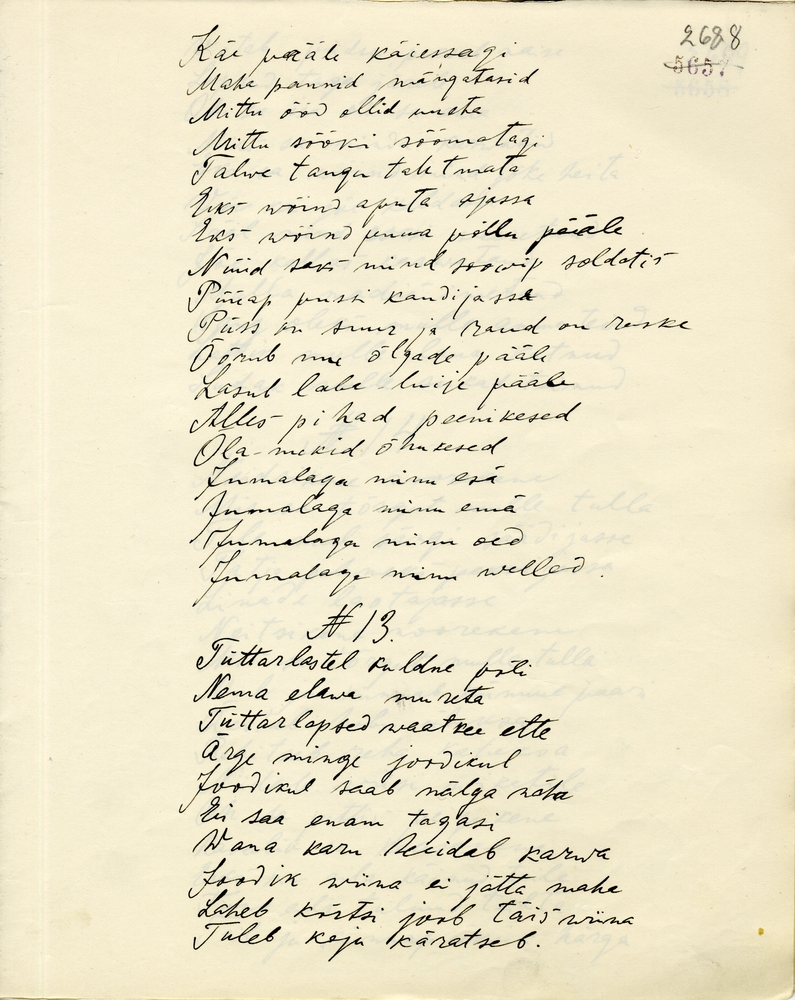 2688
5657
Käe pääle käiessagi
Maha pannid mängatasid
Mittu ööd ollid uneta
Mittu sööki söömatagi
Talwe tangu tahtmata
Eks wõind aputa ajassa
Eks wõind panna põllu pääle
Nüüd saks mind soowip soldatis
Püüap püssi kandijassa
Püss on suur ja raud on raske
Õõrub mu õlgade pääle
Lasub laba-luije pääle
Alles pihad peenikesed
Ola-nukid õhukesed
Jumalaga minu esä
Jumalaga minu emä
Jumalaga minu õed
Jumalaga minu welled.
N 13.
Tüttarlastel kuldne põli
Nema elawa mureta
Tüttarlapsed waatkee ette
Ärge minge joodikul
Joodikul saab nälga näha
Ei saa enam tagasi
Wana karu heidab karwa
Joodik wiina ei jätta maha
Laheb kõrtsi joob täis wiina
Tuleb koju käratseb.